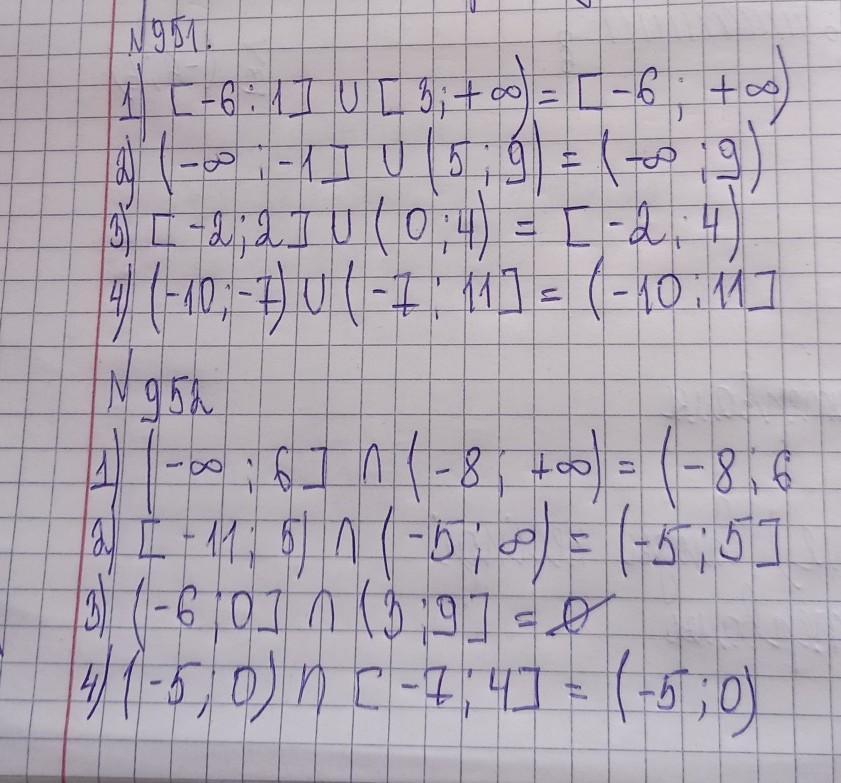 N951.
1) [-6;1] ∪ [3;+∞) = [-6; +∞)
2) (-∞;-1] ∪ (5;9) = (-∞;9)
3) [-2;2] ∪ (0;4) = [-2;4)
4) (-10;-7) ∪ (-7;11] = (-10;11]
N952
1) (-∞;6] ∩ (-8;+∞) = (-8;6
2) [-11;5) ∩ (-5;∞) = (-5;5]
3) (-6;0] ∩ (3;9] = ∅
4) (-5;0) ∩ [-7;4] = (-5;0)